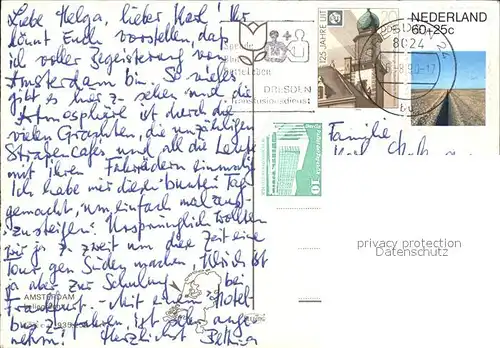 Liebe Helga, lieber Karl! Ihr
könnt Euch vorstellen, daß
ich voller Begeisterung von
Amsterdam bin. So vieles
gibt es hier zu sehen und die
Atmosphäre ist durch die
vielen Grachten, die unzähligen
Straßencafés und all die Leute
mit ihren Fahrrädern einmalig
Ich habe mir diese bunten Tage
gemacht, um einfach mal aus-
zusteigen. Ursprünglich wollten
wir ja zu zweit um diese Zeit eine
Tour gen Süden machen, Ulrich ist
ja aber zur Schulung bei
Frankfurt - Mit einem Hotel-
bus zu fahren, ist sehr ange-
nehm! Herzlichst Bettina
DRESDEN
Transfusionsdienst
125 JAHRE UIT
20
8024
NEDERLAND
60+25c
10
Familie
privacy protection
Datenschutz
AMSTERDAM